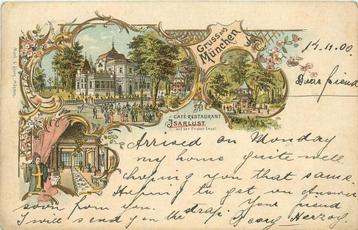 Gruss aus
München
CAFÉ-RESTAURANT
ISARLUST
auf der Prater Insel
14.11.00
Dear friend
Arrived on Monday
my home quite well
hoping you that same.
Hoping to get an answer
soon from you. Your friend
I will send you the Georg Herzog